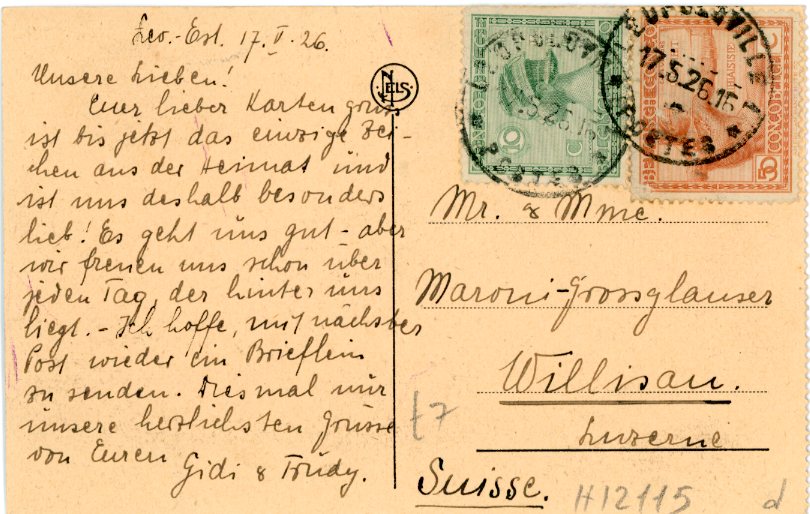 Leo.-Est. 17. V. 26.
Unsere Lieben!
Euer lieber Kartengruss
ist bis jetzt das einzige Zei-
chen aus der Heimat und
ist uns deshalb besonders
lieb! Es geht uns gut - aber
wir freuen uns schon über
jeden Tag, der hinter uns
liegt. - Ich hoffe, mit nächster
Post wieder ein Brieflein
zu senden. Diesmal nur
unsere herzlichsten Grüsse
von Euren
Gidi & Trudy.
NELS
LEOPOLDVILLE
POSTES
10
C
LEOPOLDVILLE 1
17.5.26.16
POSTES
CONGO BELGE
50
C
Mr. & Mme.
Maroni-Grossglauser
Willisau.
Luzerne
Suisse.
t7
H12115
d